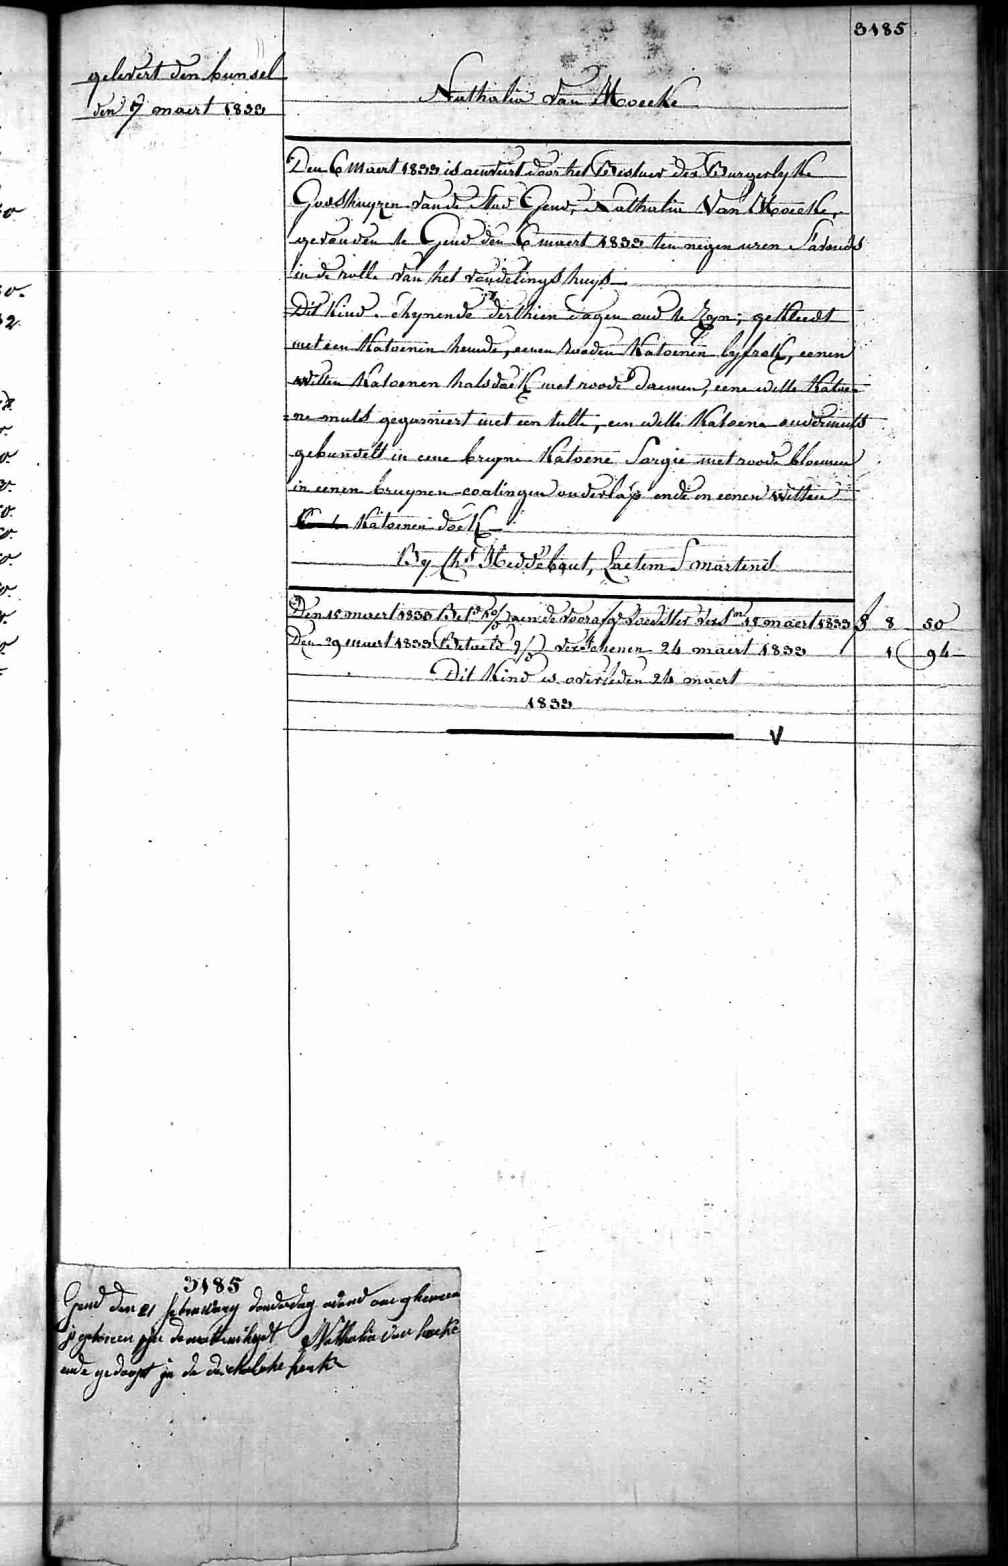 3185
gelevert den bunsel
den 7 maert 1833
Nathalia Van Moecke
Den 6 Maert 1833 is aenveirt door het Bestuer der Burgerlyke
Godshuyzen van de Stad Gend, Nathalia Van Moecke,
gevonden te Gend den 6 maert 1833 ten negen uren S'avonds
in de rolle van het vondelingshuys
Dit Kind schynende derthien dagen oud te zyn; gekleedt
met een Katoenen hemde, eenen rooden Katoenen lyfrok, eenen
witten Katoenen halsdoek met roode blommen, eene witte Katoe=
=ne muts gegarniert met een tulle, een witte Katoene ondermuts
gebunselt in eene bruyne Katoene Sargie met roode bloemen
in eenen bruynen coatingen onderlap ende in eenen witten
Katoenen doek
By Ch. Meddebout, Laetem S martens
Den 15 maert 1833 Bet. aen de voorafg. voedster 15 maert 1833 8 50
Den 29 maert 1833 Betaeld verschenen 24 maert 1833 1 94
Dit Kind is overleden 24 maert
1833
V
3185
Gend den 21 februwary donderdag avond
is geboren Nathalia van hoeke
ende gedoopt in de kerke